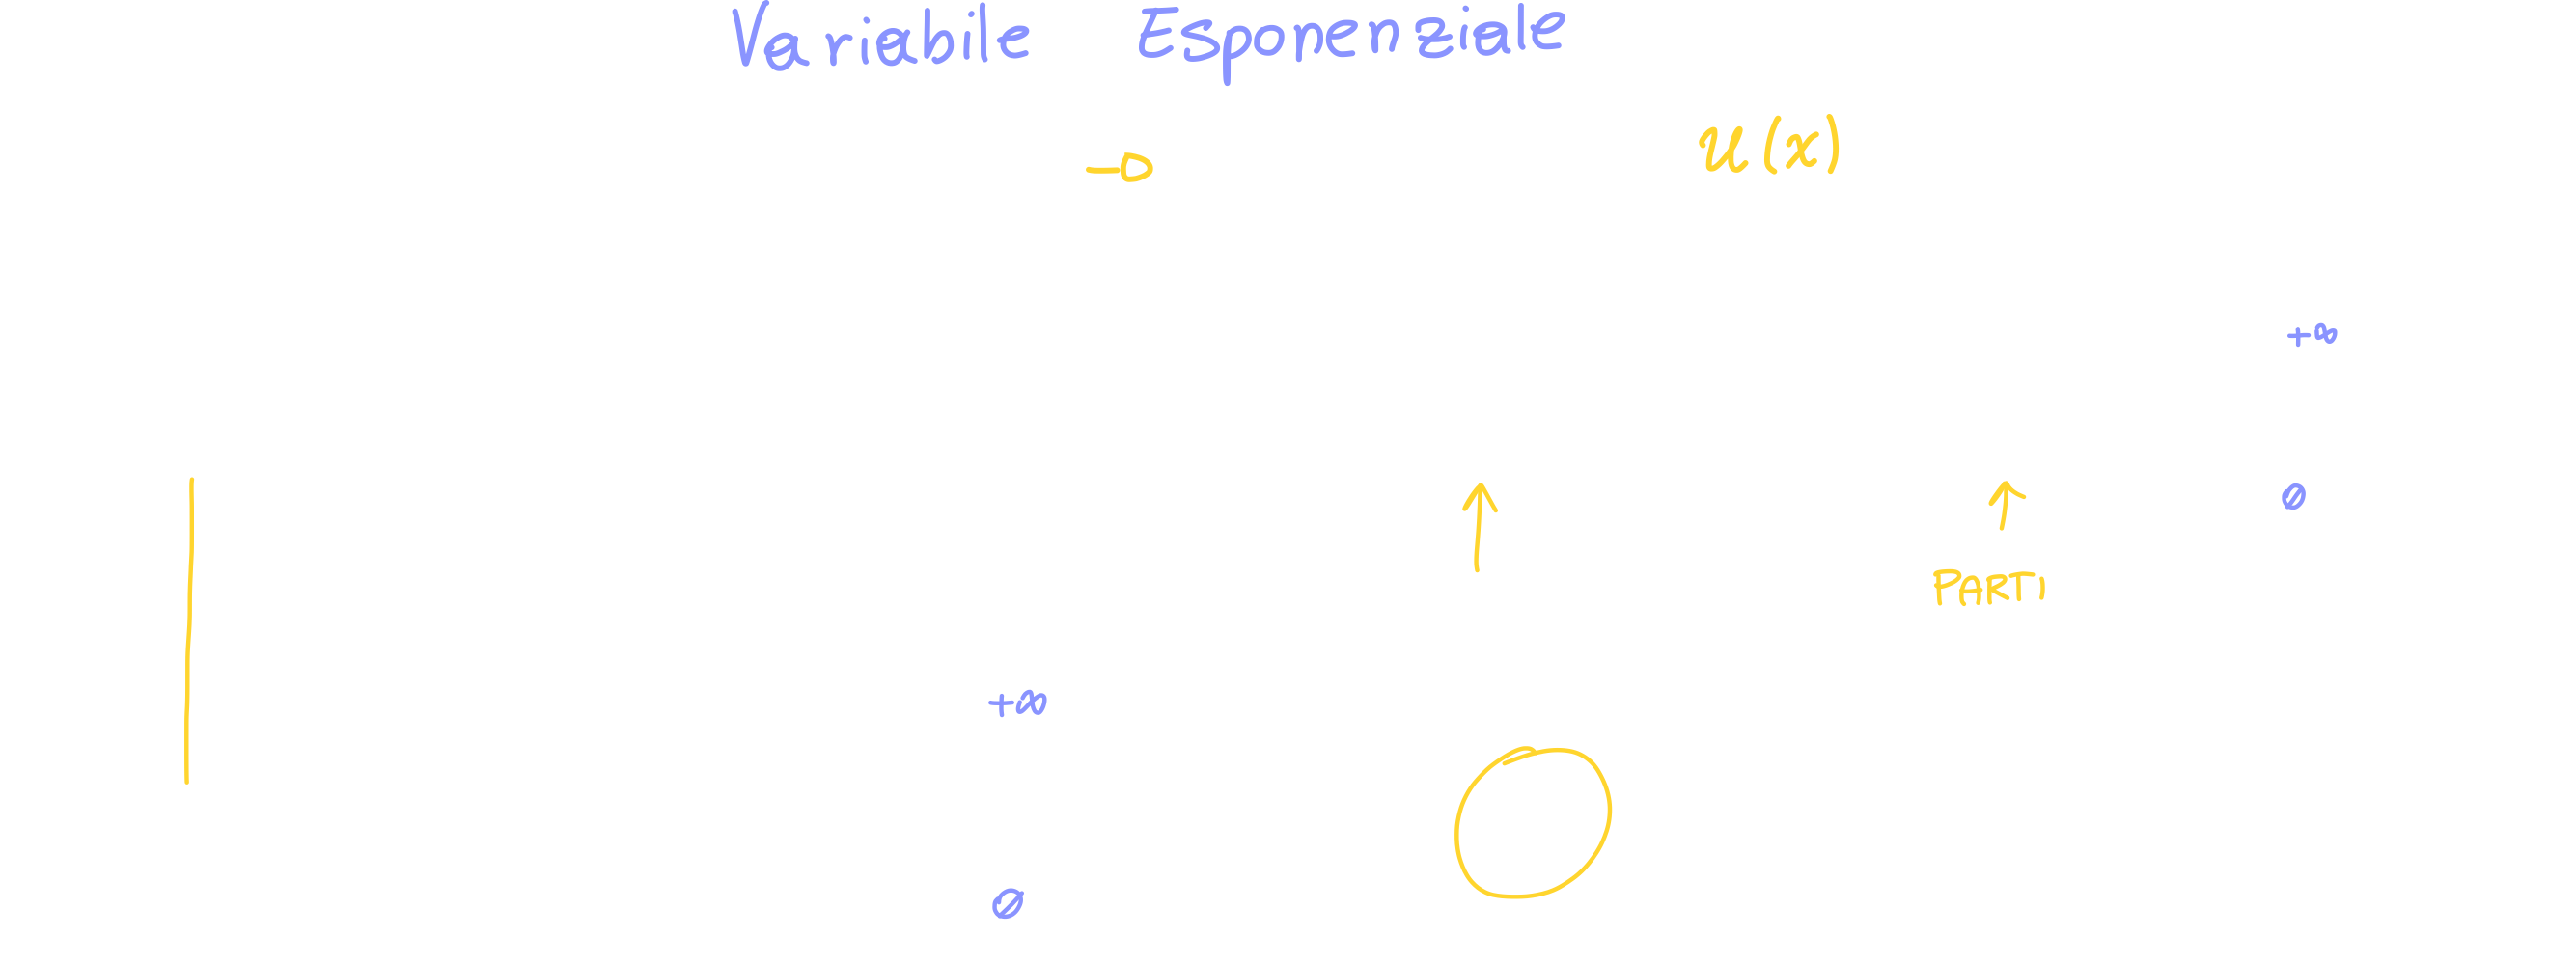 Variabile Esponenziale
→ U(x)
+∞
0
PARTI
+∞
0